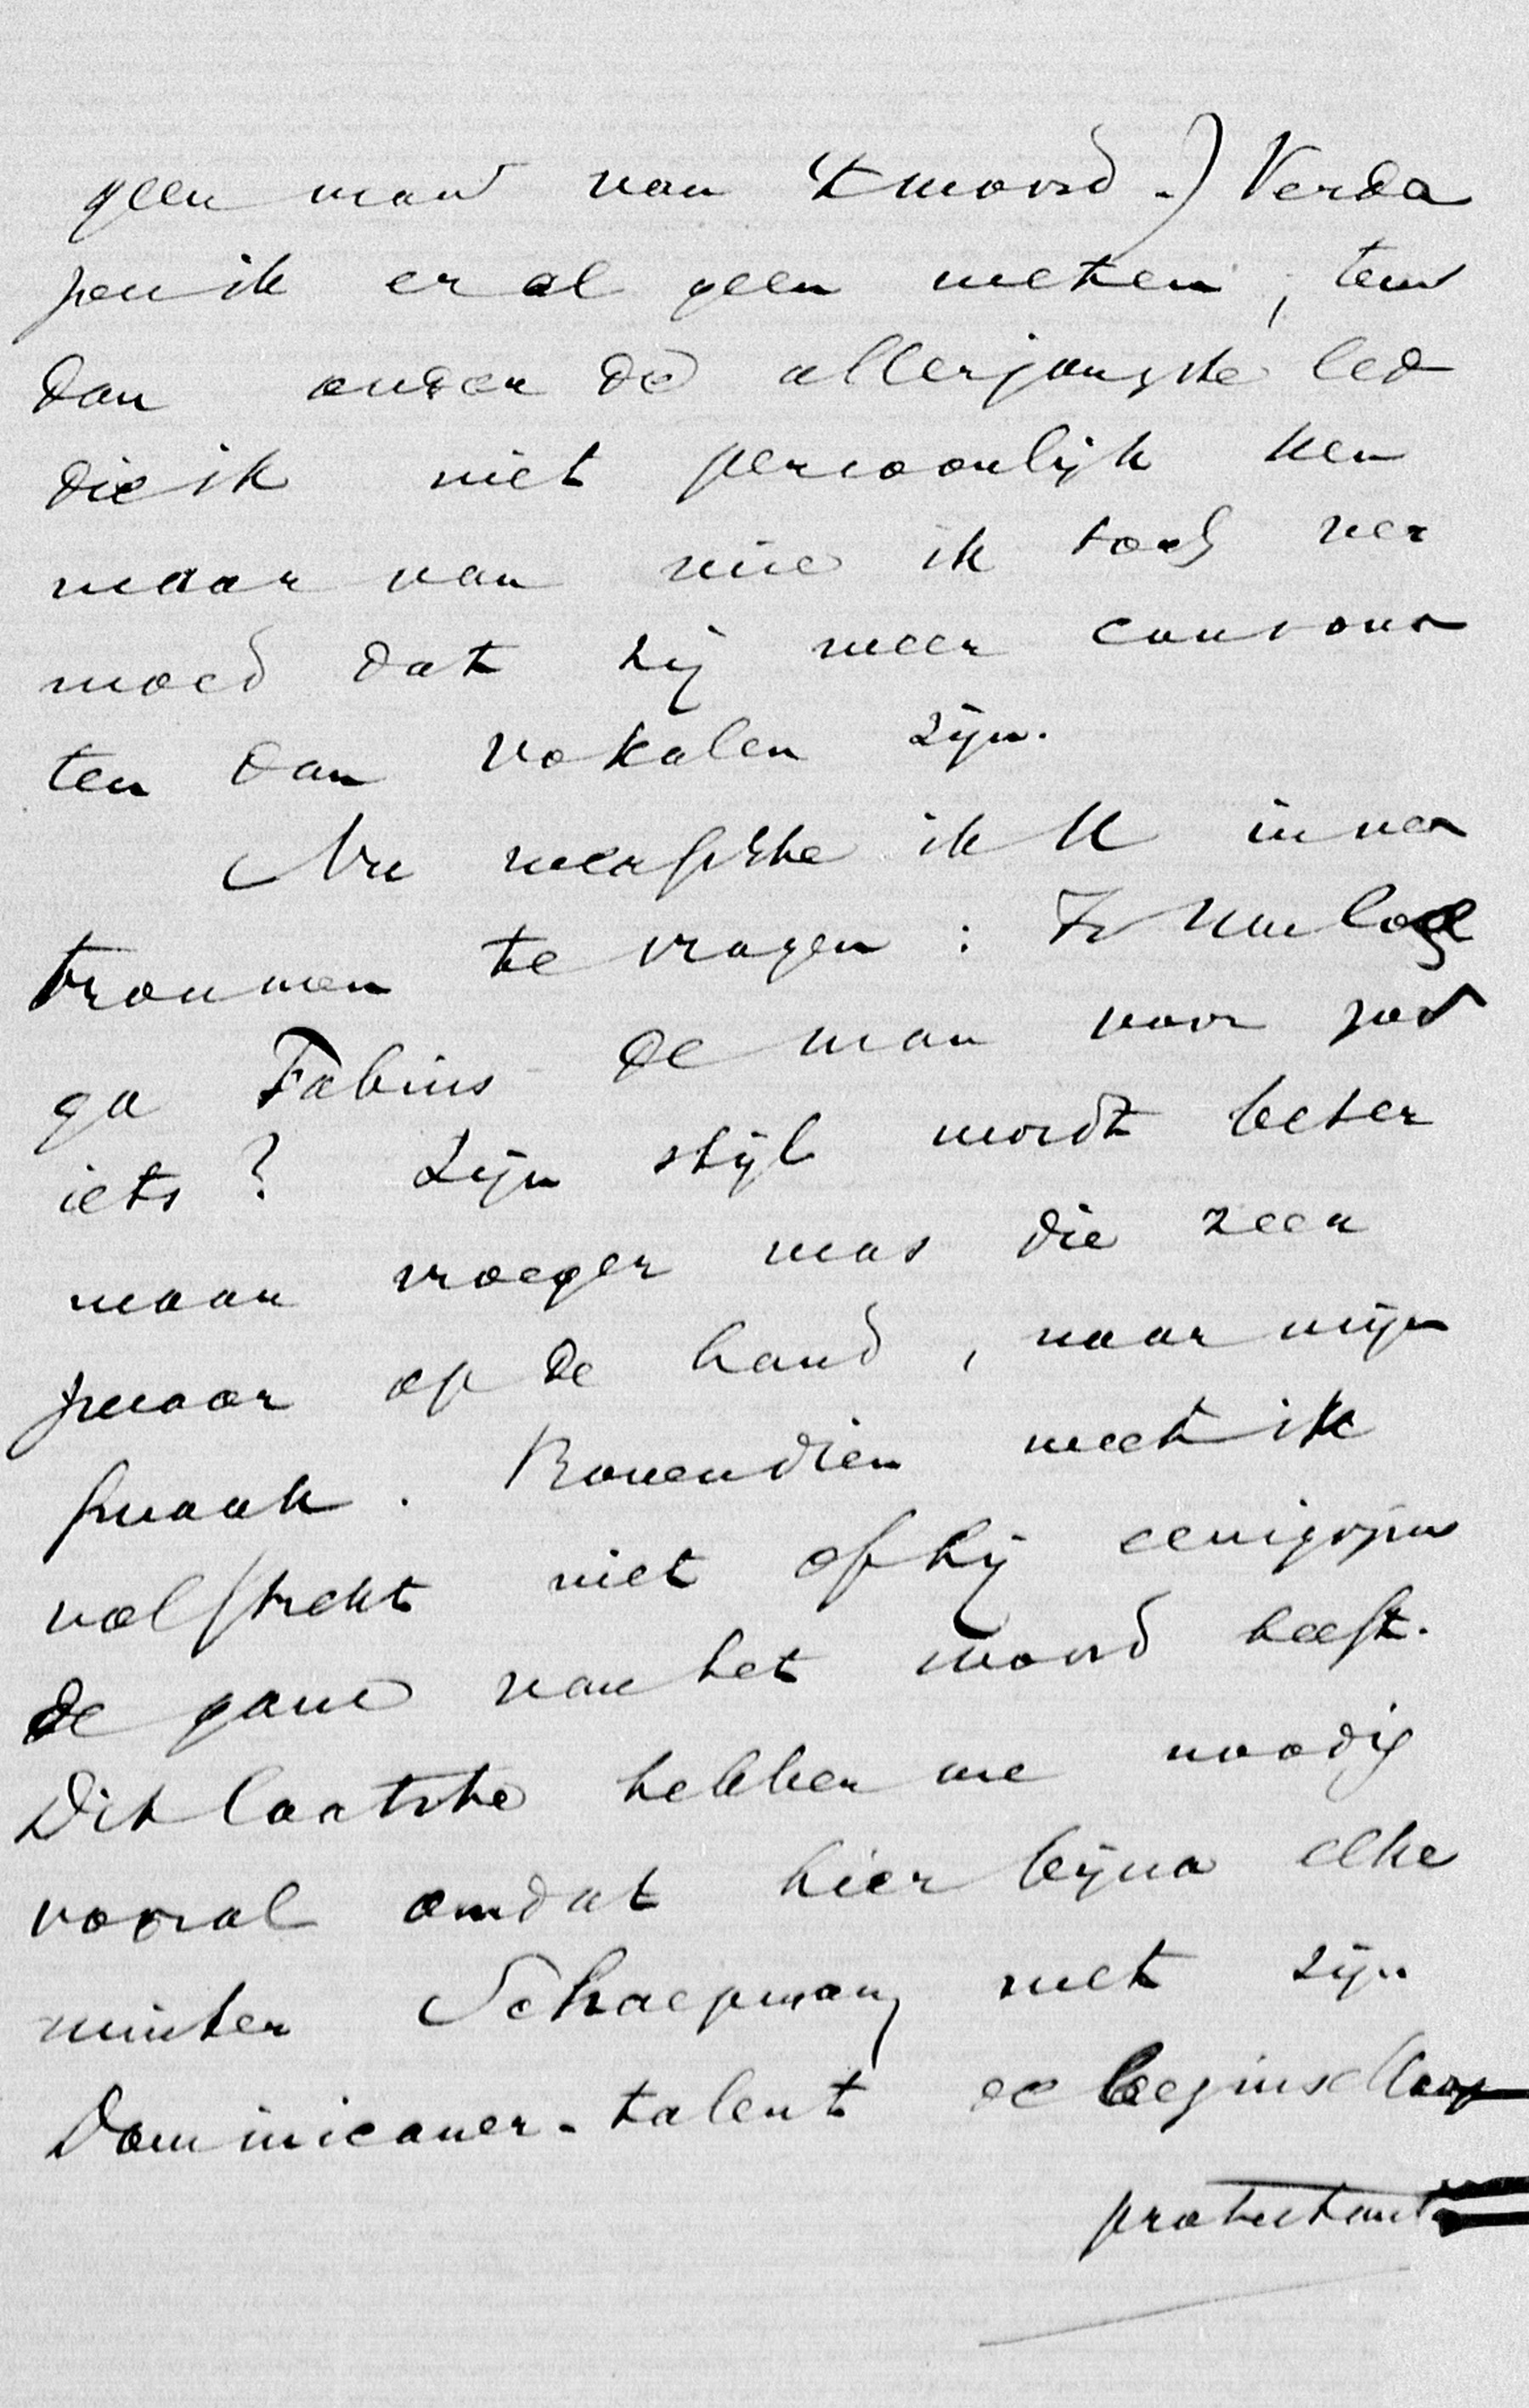 geen man van 't woord.) Verda
zou ik er al geen weten, ten
dan onder de allerjongste led
die ik niet persoonlijk ken
maar van wie ik toch ver
moed dat zij meer conson
ten dan vokalen zijn.
Nu wenschte ik U in ver
trouwen te vragen: Is uw collega
ga Fabius de man voor zoo
iets? Zijn stijl wordt beter
maar vroeger was die zeer
zwaar op de hand, naar mijn
smaak. Bovendien weet ik
volstrekt niet of hij eenigszins
de gave van het woord heeft.
Dit laatste hebben we noodig
vooral omdat hier bijna elke
winter Schaepman, met zijn
Dominicaner-talent de beginsellooze
protestant